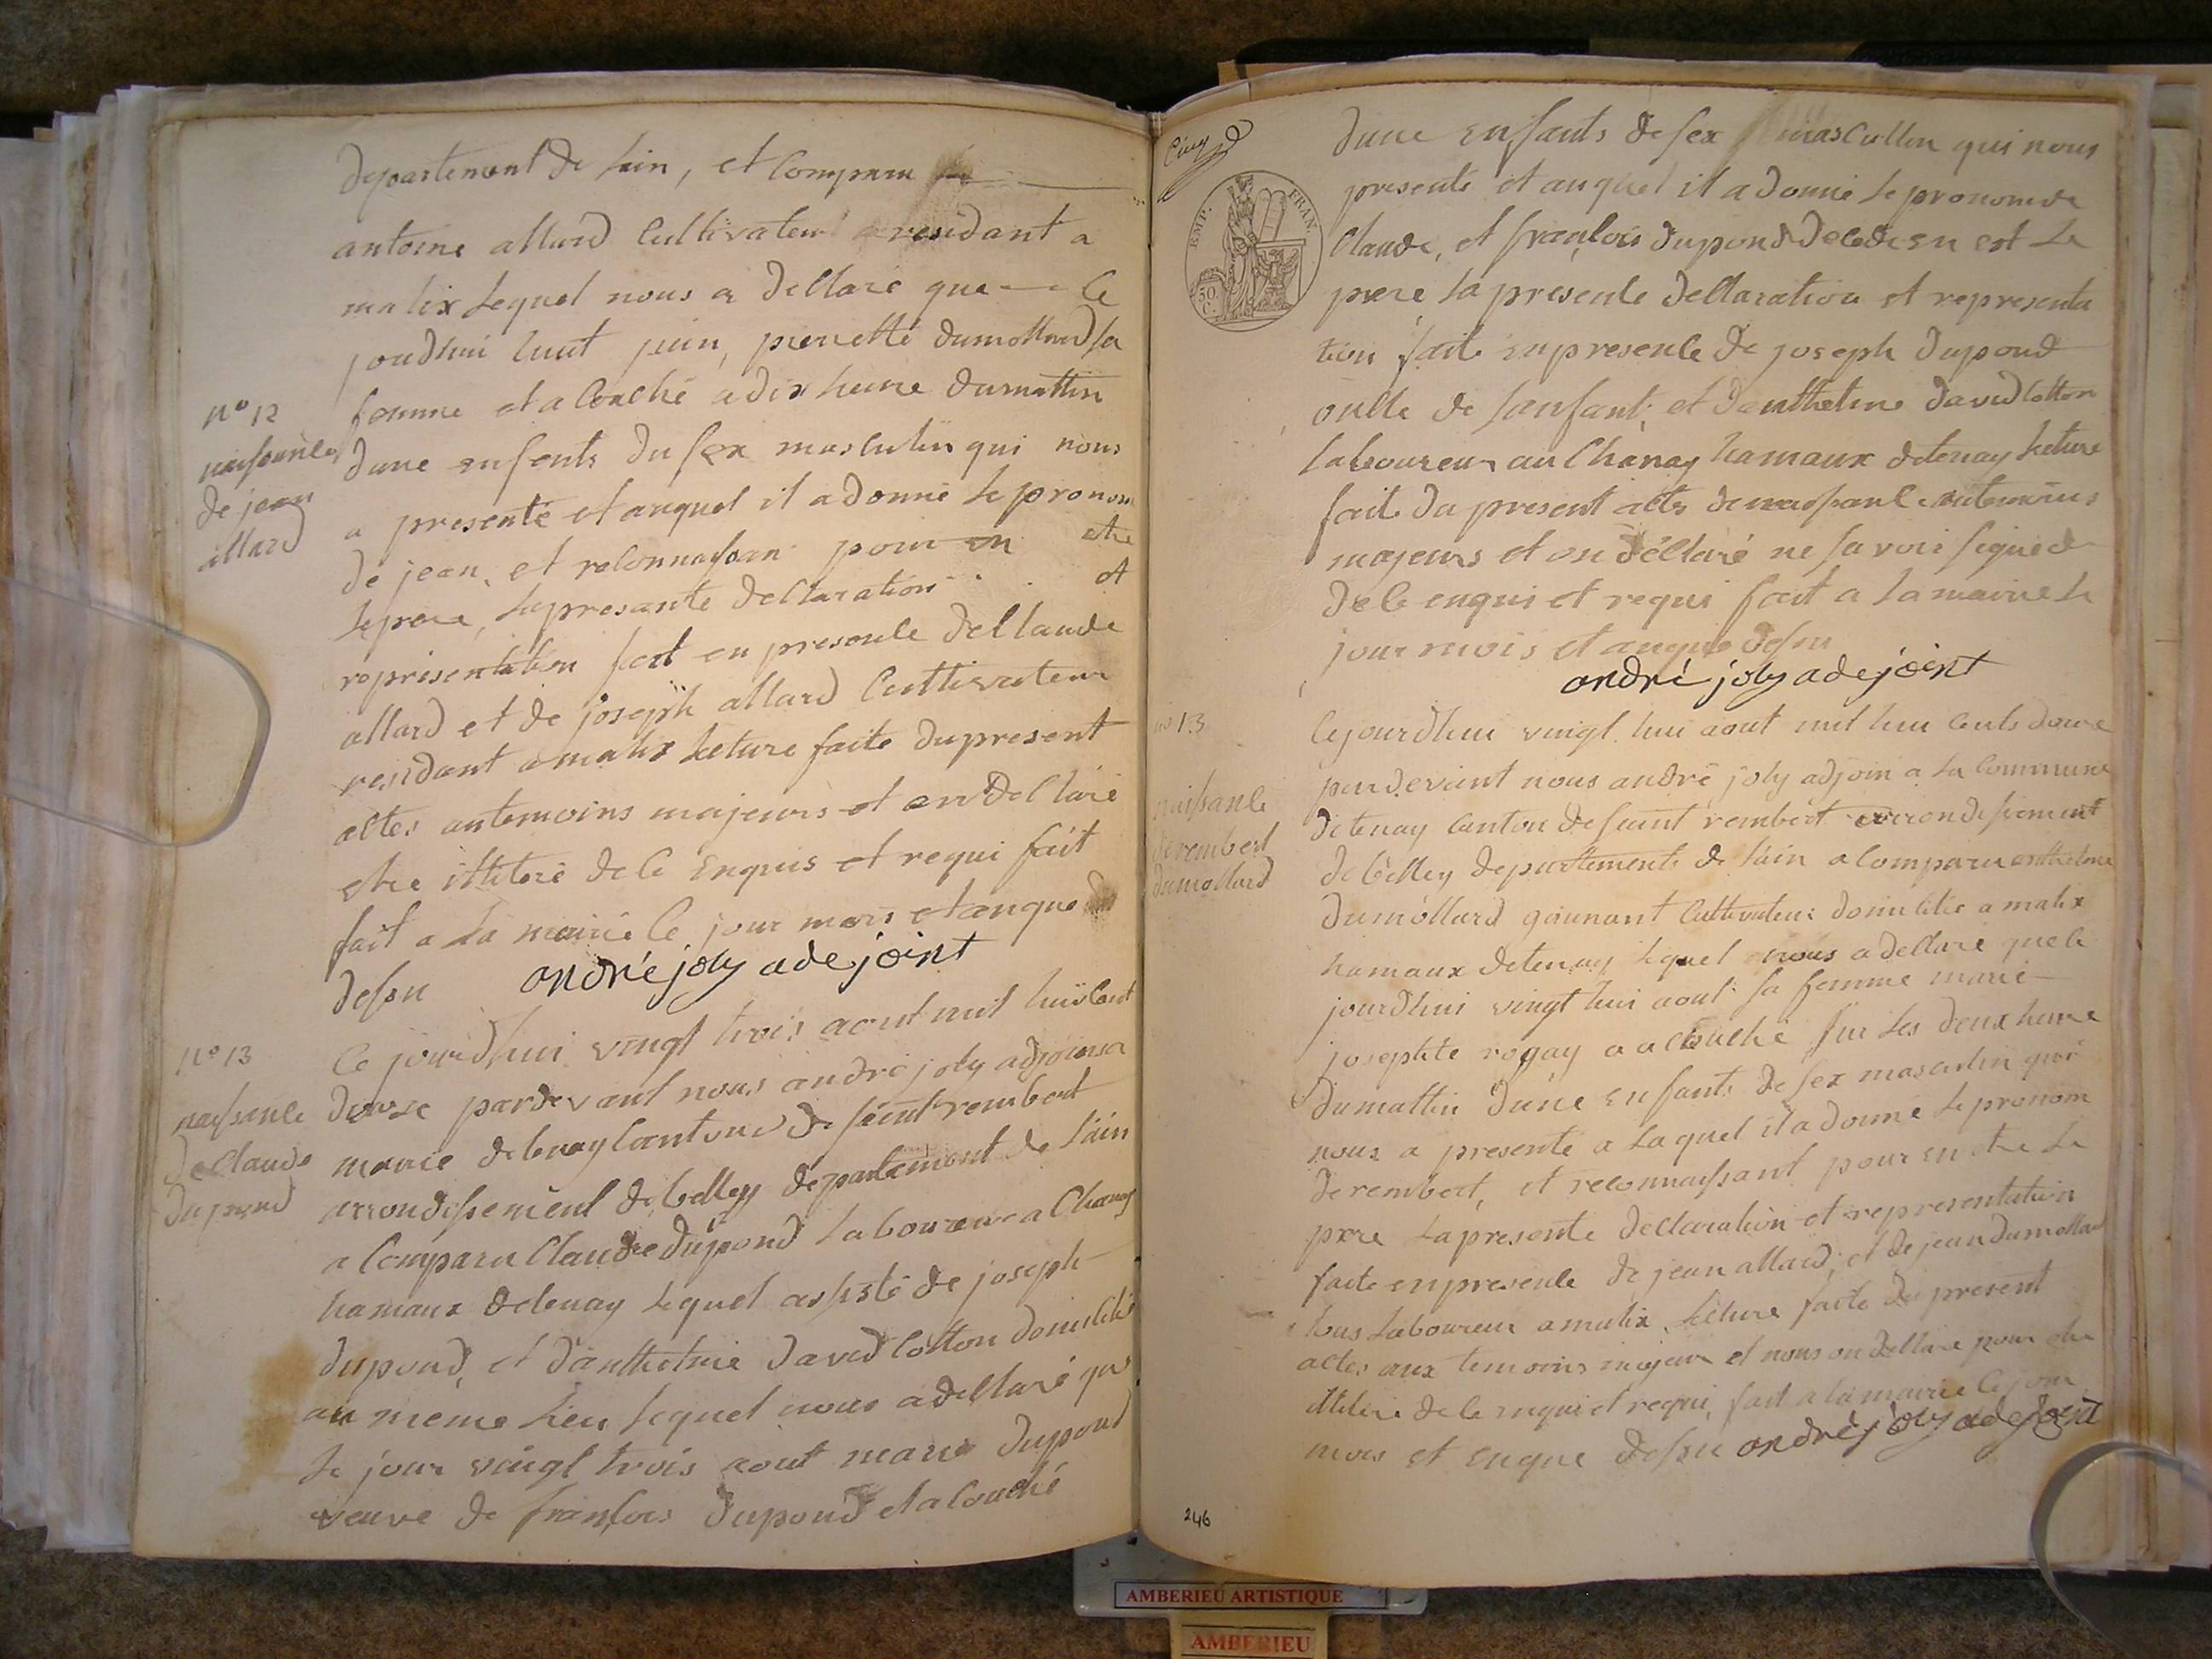 departement de lain, et Comparu
antoine allard Cultivateur residant a
malix Lequel nous a dellaré que Ce
jourdhui huit juin, pierrette dumollard sa
femme et acouché a dix heure dumattin
dune enfents du sex masculin qui nous
a presenté et auquel il a donné le pronom
de jean, et reconnassan pour en etre
le pere, la presante dellaration et
representation fait en presence dellaude
allard et de joseph allard Cultivateur
residant a malix Leture faite dupresent
altes autemoins majeurs et on dellaré
etre illiteré de ce enquis et requi fait
fait a la mairie le jour mois et anque
dessu andré joly adejoint
n° 12
naissance
de jean
allard
Ce jourdhui vingt trois aout mil huit Cent
douze pardevant nous andré joly adjoin a
mairie detenay Canton de saint rembert
arrondissement de belley departement de lain
a Comparu Claude dupond Laboureur a Chanay
hamaux detenay Lequel assisté de joseph
dupond, et danthelme david Cotton domicilié
au meme lieu Lequel nous a dellaré que
Le jour vingt trois aout marie dupond
veuve de francois dupond et a Couché
n° 13
naissance
de Claude
dupond
Cinq
EMP. FRAN.
50 C.
dune enfants de sex mascullin qui nous
presenté et auquel il a donné le pronom de
Claude, et francois dupond decede en est Le
pere la presente dellaration et representa
tion faite enpresence de joseph dupond
oncle de lanfant, et danthelme david Cotton
Laboureur au Chanay hamaux detenay Leture
fait du present altes de naissance autemoins
majeurs et on déllaré ne savoir signé de
de ce enqui et requi fait a la mairie le
jour mois et anque dessu
andré joly adejoint
n° 13
naissance
de rembert
dumollard
Cejourdhui vingt hui aout mil hui Cents douze
pardevant nous andré joly adjoin a la Commune
detenay Canton de saint rembert arrondissement
de belley departements de lain a Comparu anthelme
dumollard Cultivateur domicilie a malix
hamaux detenay Lequel nous a dellaré que le
jourdhui vingt hui aout sa femme marie
josephte rogay a acouché sur les deux heure
dumattin dune enfants de sex masculin qui
nous a presente a laquel il a donné le pronom
de rembert, et reconnaissant pour en etre Le
pere Lapresente dellaration et representation
faite enpresence de jean allard, et de jean dumollard
tous Laboureur a malix Leture faite du present
altes aux temoins majeur et nous on dellare pour etre
illitere de ce enqui et requi, fait a la mairie le jour
mois et enque dessu andré joly adejoint
246
AMBERIEU ARTISTIQUE
AMBERIEU